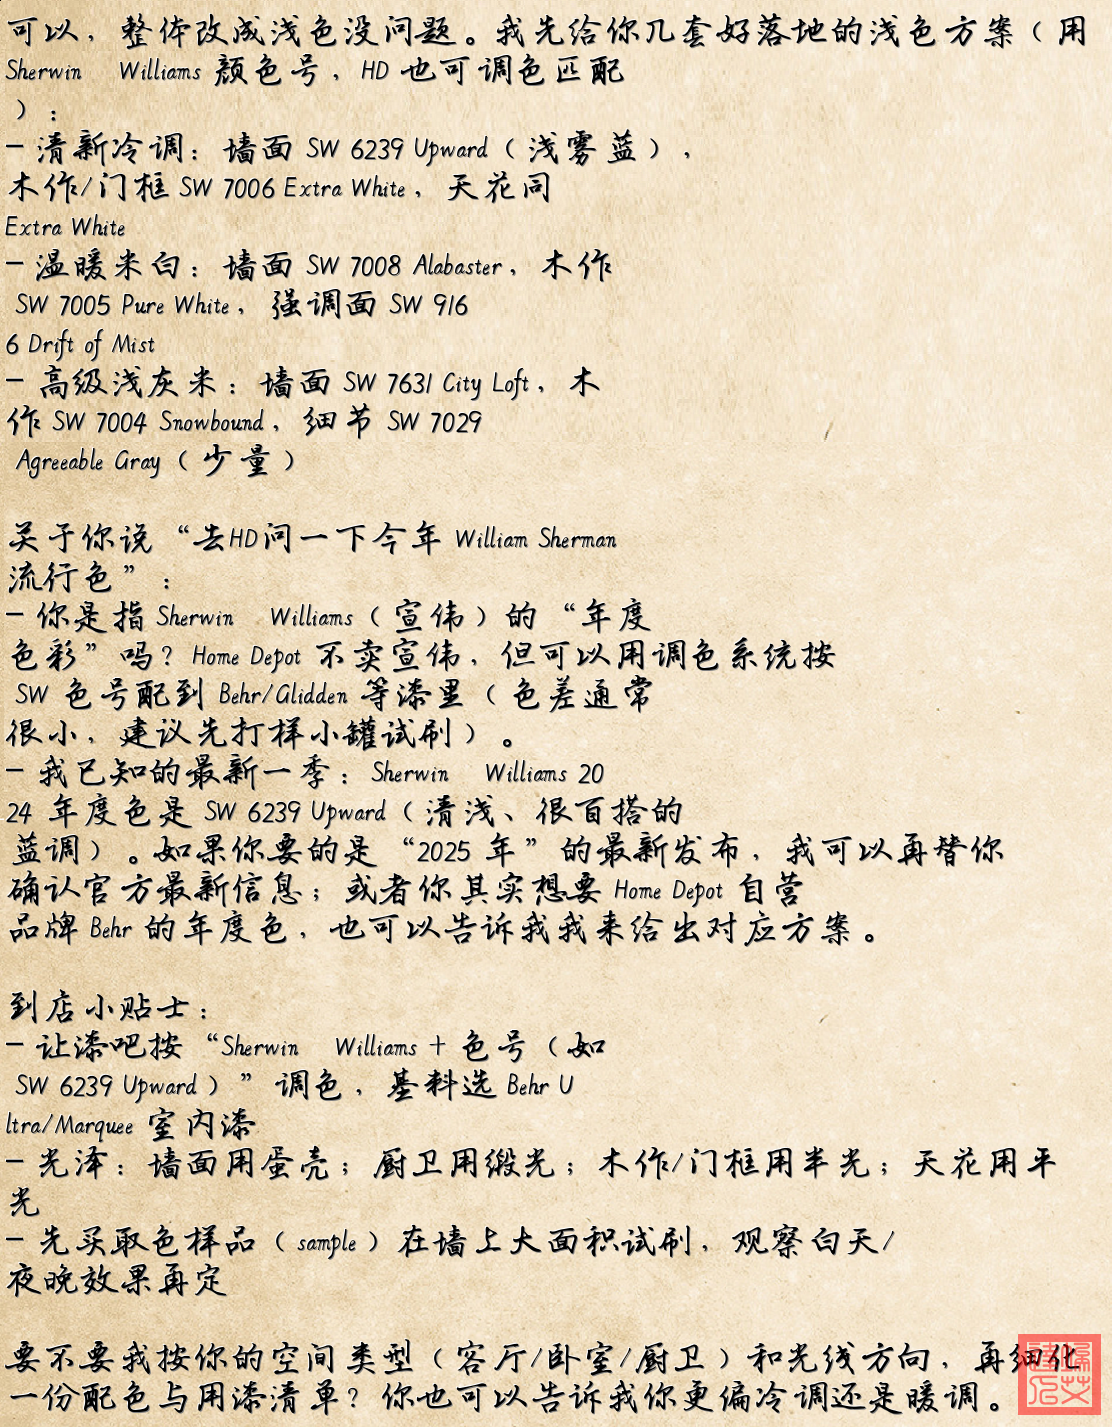 可以，整体改成浅色没问题。我先给你几套好落地的浅色方案（用
Sherwin Williams 颜色号，HD 也可调色匹配
）：
- 清新冷调：墙面 SW 6239 Upward（浅雾蓝），
木作/门框 SW 7006 Extra White，天花同
Extra White
- 温暖米白：墙面 SW 7008 Alabaster，木作
SW 7005 Pure White，强调面 SW 916
6 Drift of Mist
- 高级浅灰米：墙面 SW 7631 City Loft，木
作 SW 7004 Snowbound，细节 SW 7029
Agreeable Gray（少量）
关于你说“去HD问一下今年 William Sherman
流行色”：
- 你是指 Sherwin Williams（宣伟）的“年度
色彩”吗？Home Depot 不卖宣伟，但可以用调色系统按
SW 色号配到 Behr/Glidden 等漆里（色差通常
很小，建议先打样小罐试刷）。
- 我已知的最新一季：Sherwin Williams 20
24 年度色是 SW 6239 Upward（清浅、很百搭的
蓝调）。如果你要的是“2025 年”的最新发布，我可以再替你
确认官方最新信息；或者你其实想要 Home Depot 自营
品牌 Behr 的年度色，也可以告诉我我来给出对应方案。
到店小贴士：
- 让漆吧按“Sherwin Williams + 色号（如
SW 6239 Upward）”调色，基料选 Behr U
ltra/Marquee 室内漆
- 光泽：墙面用蛋壳；厨卫用缎光；木作/门框用半光；天花用平
光
- 先买取色样品（sample）在墙上大面积试刷，观察白天/
夜晚效果再定
要不要我按你的空间类型（客厅/卧室/厨卫）和光线方向，再细化
一份配色与用漆清单？你也可以告诉我你更偏冷调还是暖调。